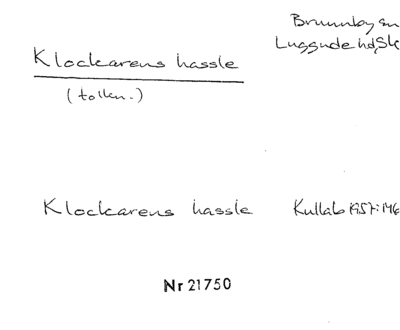 Brunnby sn
Luggude hd, Sk
Klockarens hassle
(tolkn.)
Klockarens hassle Kullab 1957:146
Nr 21750